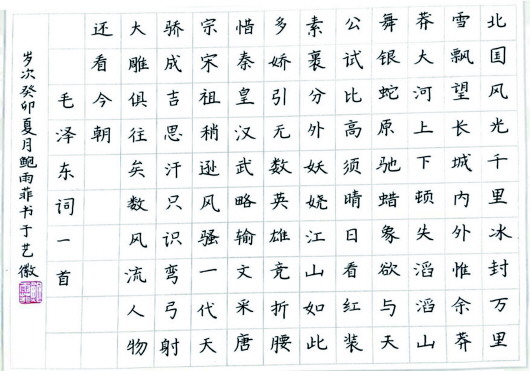 北国风光千里冰封万里
雪飘望长城内外惟余莽
莽大河上下顿失滔滔山
舞银蛇原驰蜡象欲与天
公试比高须晴日看红装
素裹分外妖娆江山如此
多娇引无数英雄竞折腰
惜秦皇汉武略输文采唐
宗宋祖稍逊风骚一代天
骄成吉思汗只识弯弓射
大雕俱往矣数风流人物
还看今朝
毛泽东词一首
岁次癸卯夏月鲍雨菲书于艺徽